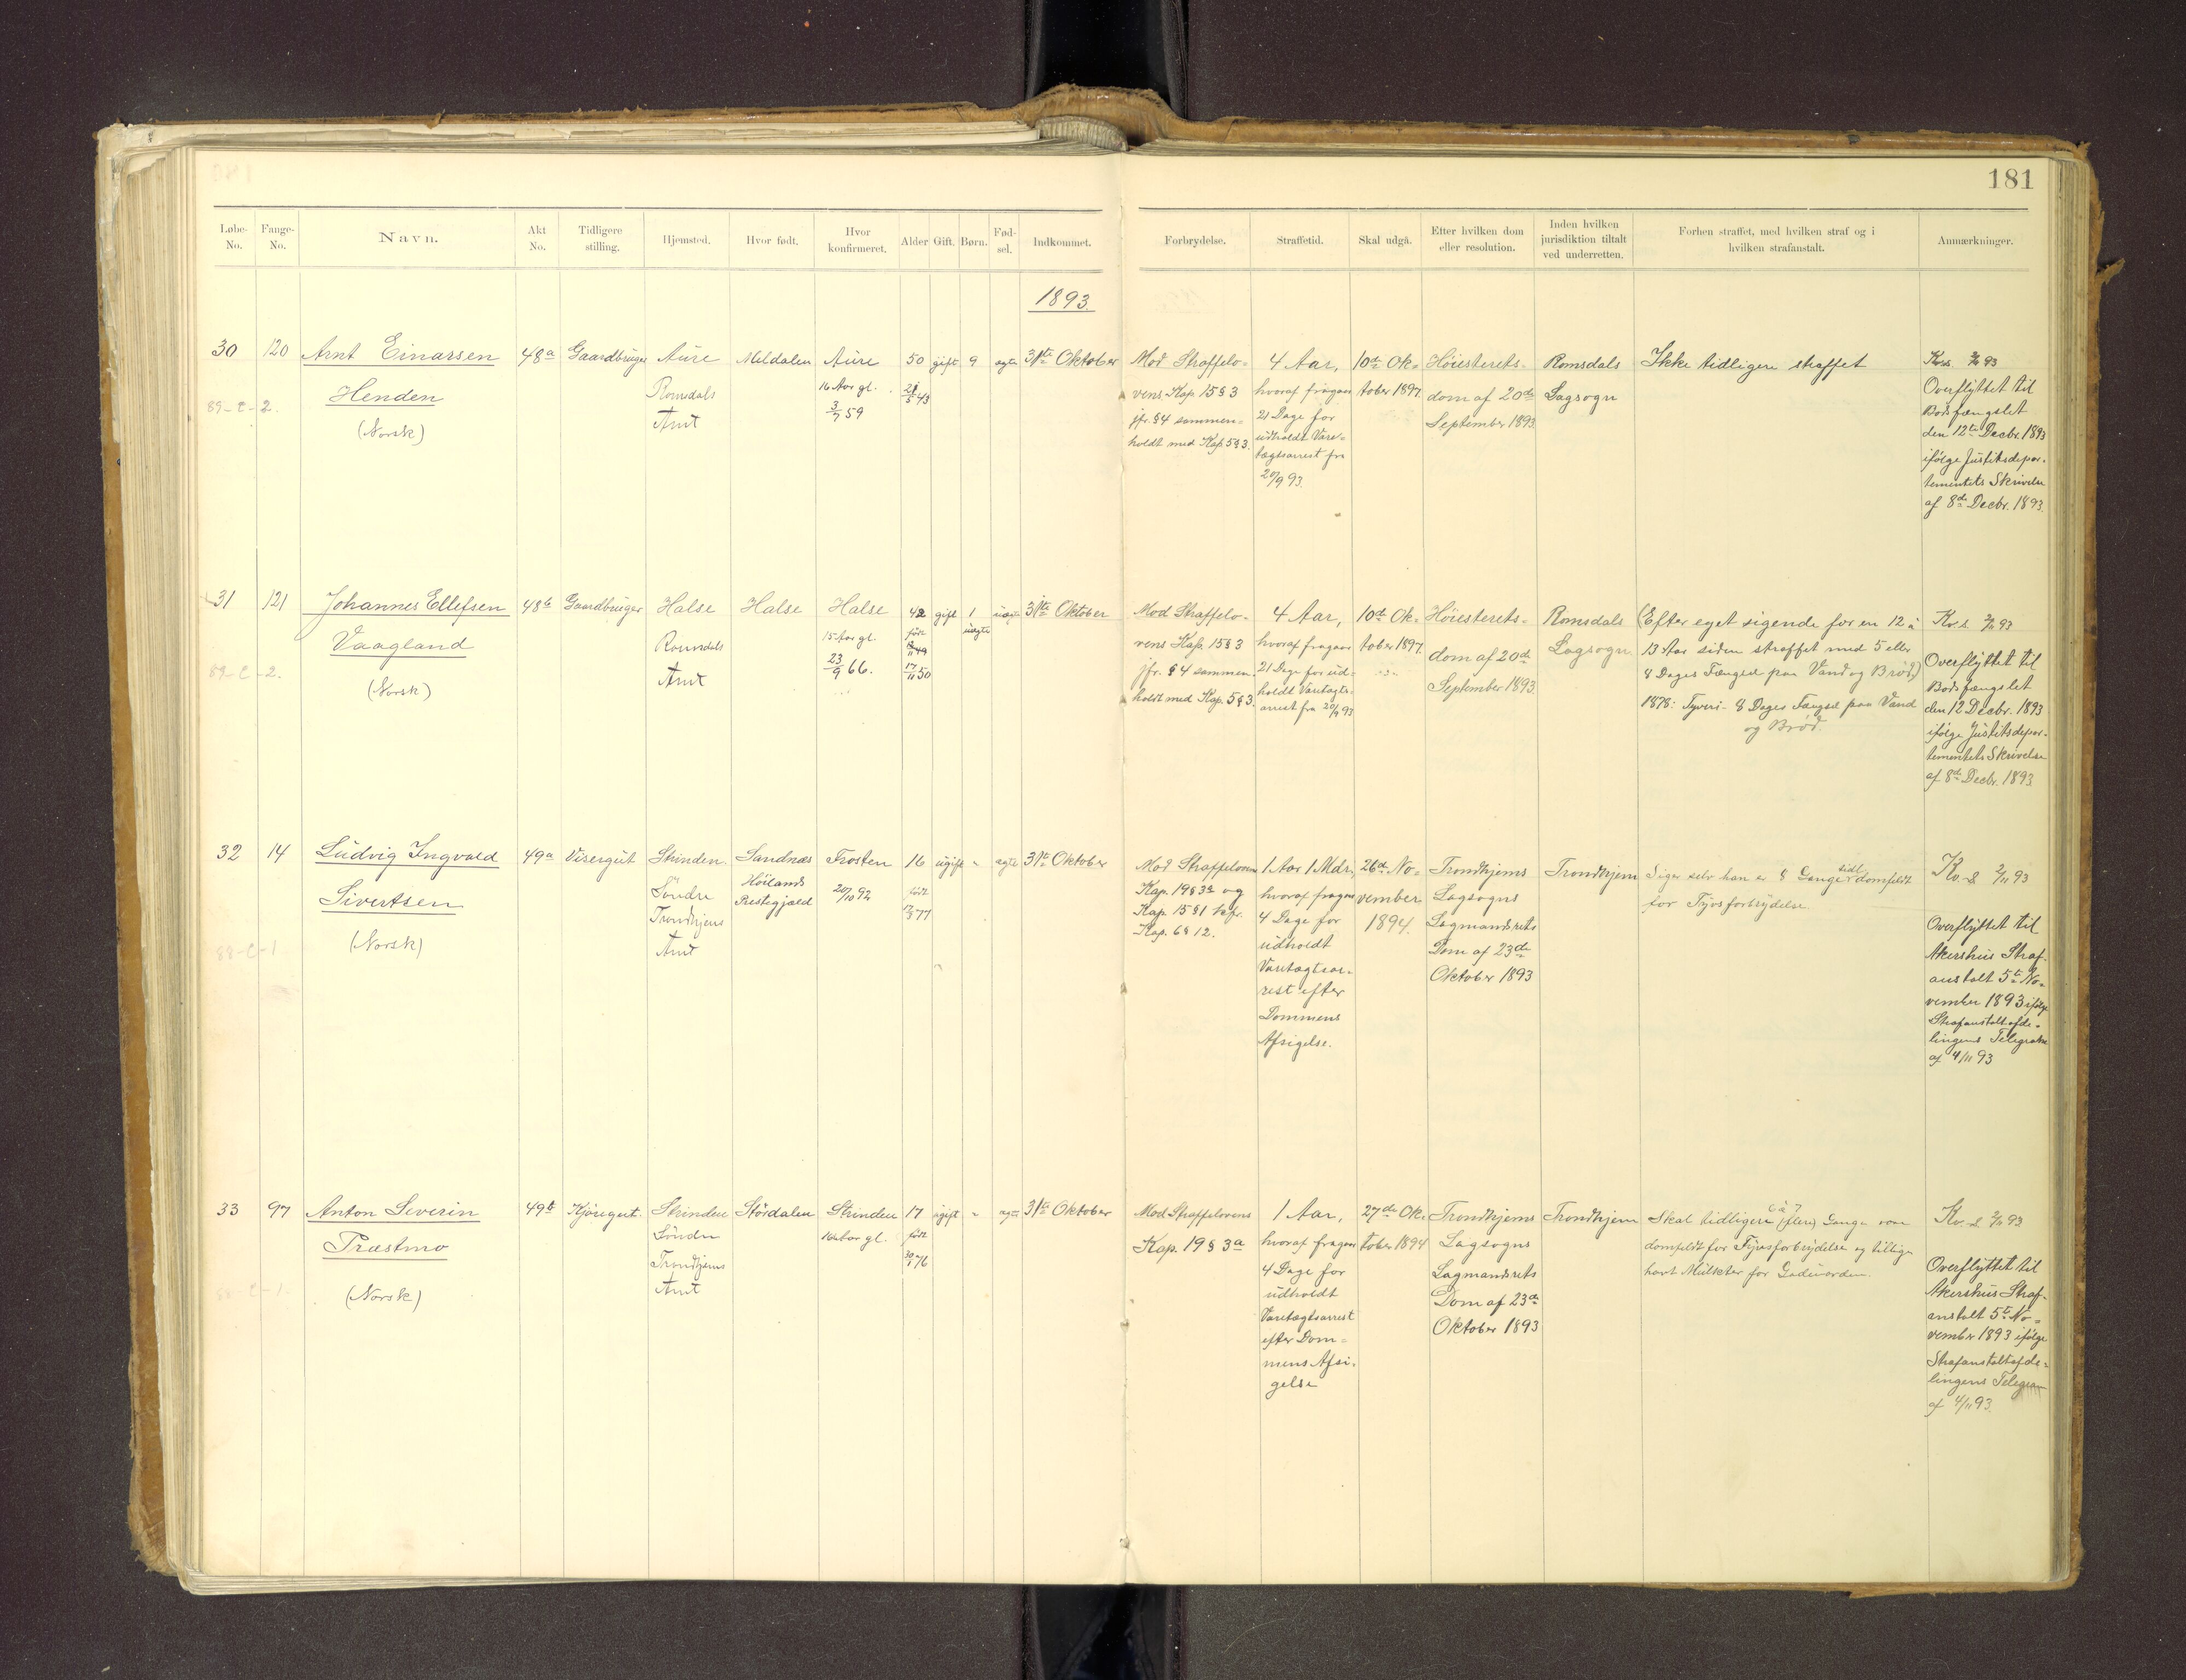 181
Løbe-No. Fange-No. Navn. Akt No. Tidligere stilling. Hjemsted. Hvor født. Hvor konfirmeret. Alder Gift. Børn. Fød-sel. Indkommet. Forbrydelse. Straffetid. Skal udgå. Efter hvilken dom eller resolution. Inden hvilken jurisdiktion tiltalt ved underretten. Forhen straffet, med hvilken straf og i hvilken strafanstalt. Anmærkninger.
1893.
30 120 Arnt Einarsen 48a Gaardbruger Aure Meldalen Aure 50 gift 9 ægte 31te Oktober
Henden
(Norsk)
89-C-2.
Romsdals
Amt
16 Aar gl.
3/7 59
21/5 43
Mod Straffelo-
vens Kap. 15 § 3
jfr. § 4 sammen-
holdt med Kap. 5 § 3.
4 Aar,
hvoraf fragaar
21 Dage for
udholdt Vare-
tægtsarrest fra
20/9 93.
10de Ok-
tober 1897.
Høiesterets-
dom af 20de
September 1893.
Romsdals
Lagsogn
Ikke tidligere straffet
Overflyttet til
Bodsfængslet
den 12te Decbr. 1893
ifølge Justitsdepar-
tementets Skrivelse
af 8de Decbr. 1893.
31 121 Johannes Ellefsen 48b Gaardbruger Halse Halse Halse 42 gift 1 uægte 31te Oktober
Vaagland
(Norsk)
89-C-2.
Romsdals
Amt
15 Aar gl.
23/9 66.
født
17/11 50
uægte
Mod Straffelo-
vens Kap. 15 § 3
jfr. § 4 sammen-
holdt med Kap. 5 § 3.
4 Aar,
hvoraf fragaar
21 Dage for ud-
holdt Varetægts-
arrest fra 20/9 93
10de Ok-
tober 1897.
Høiesterets-
dom af 20de
September 1893.
Romsdals
Lagsogn.
(Efter eget sigende for en 12 à
13 Aar siden straffet med 5 eller
8 Dages Fængsel paa Vand og Brød)
1878: Tyveri - 8 Dages Fængsel paa Vand
og Brød.
Overflyttet til
Bodsfængslet
den 12 Decbr. 1893
ifølge Justitsdepar-
tementets Skrivelse
af 8de Decbr. 1893
32 14 Ludvig Ingvald 49a Visergut Strinden. Sandnæs Frosten 16 ugift " ægte 31te Oktober
Sivertsen
(Norsk)
88-C-1
Søndre
Trondhjems
Amt
Høilands
Prestegjæld
20/10 92
født
Mod Straffelovens
Kap. 19 § 3a og
Kap. 15 § 1 jfr.
Kap. 6 § 12.
1 Aar 1 Mdr.,
hvoraf fragaar
4 Dage for
udholdt
Varetægtsar-
rest efter
Dommens
Afsigelse.
26de No-
vember
1894.
Trondhjems
Lagsogns
Lagmandsrets
Dom af 23de
Oktober 1893
Trondhjem
Siger selv han er 8 Gange tidl. domfeldt
for Tyvsforbrydelse.
Overflyttet til
Akershus Straf-
anstalt 5te No-
vember 1893 ifølge
Strafanstaltafde-
lingens Telegram
af 4/11 93
33 97 Anton Severin 49b Kjøregut. Strinden Stördalen Strinden 17 ugift " ægte 31te Oktober
Præstmo
(Norsk)
Søndre
Trondhjems
Amt
16 Aar gl.
født
Mod Straffelovens
Kap. 19 § 3a
1 Aar,
hvoraf fragaar
4 Dage for
udholdt
Varetægtsarrest
efter Dom-
mens Afsi-
gelse
27de Ok-
tober 1894
Trondhjems
Lagsogns
Lagmandsrets
Dom af 23de
Oktober 1893
Trondhjem
Skal tidligere 6 à 7 (flere) Gange være
domfeldt for Tyvsforbrydelse og tillige
havt Mulkter for Gadeuorden.
Overflyttet til
Akershus Straf-
anstalt 5te No-
vember 1893 ifølge
Strafanstaltafde-
lingens Telegram
af 4/11 93.